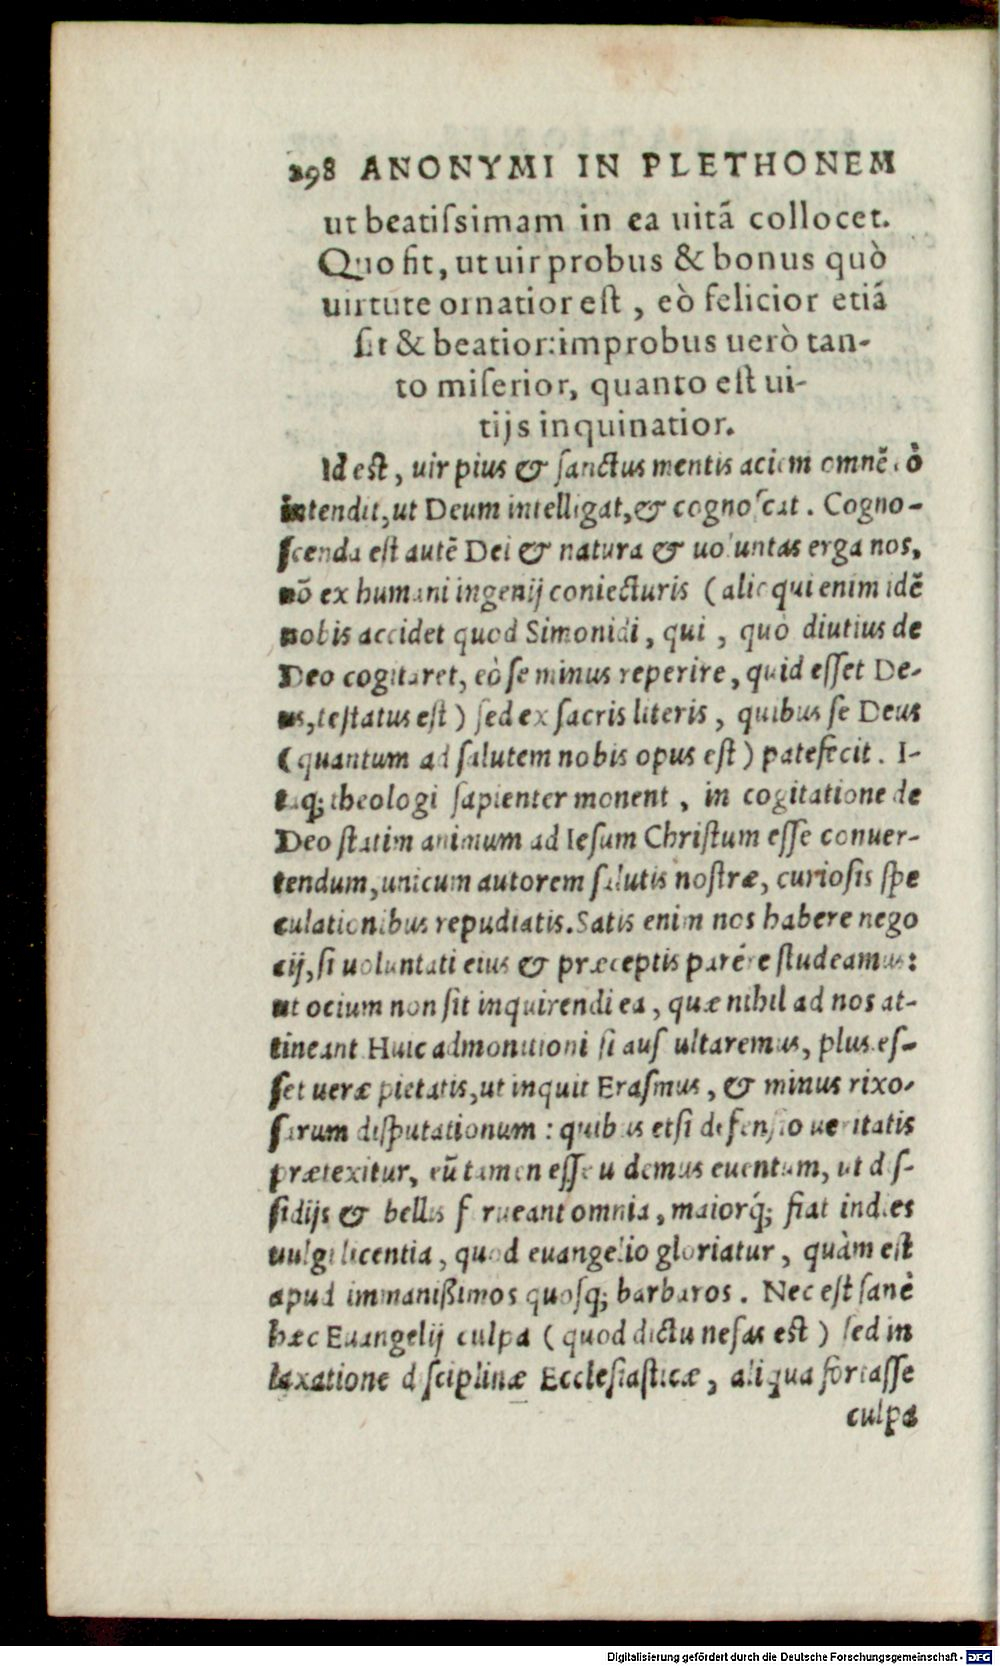 298 ANONYMI IN PLETHONEM
ut beatiſsimam in ea uitã collocet.
Quo fit, ut uir probus & bonus quò
uirtute ornatior eſt, eò felicior etiã
ſit & beatior: improbus uerò tan-
to miſerior, quanto eſt ui-
tijs inquinatior.
Id eſt, uir pius & ſanctus mentis aciem omnẽ eò
intendit, ut Deum intelligat, & cognoſcat. Cogno-
ſcenda eſt autẽ Dei & natura & uoluntas erga nos,
nõ ex humani ingenij coniecturis (alioqui enim idẽ
nobis accidet quod Simonidi, qui, quò diutius de
Deo cogitaret, eò ſe minus reperire, quid eſſet De-
us, teſtatus eſt) ſed ex ſacris literis, quibus ſe Deus
(quantum ad ſalutem nobis opus eſt) patefecit. I-
taq; theologi ſapienter monent, in cogitatione de
Deo ſtatim animum ad Ieſum Chriſtum eſſe conuer-
tendum, unicum autorem ſalutis noſtræ, curioſis ſpe
culationibus repudiatis. Satis enim nos habere nego
cij, ſi uoluntati eius & præceptis parére ſtudeamus:
ut ocium non ſit inquirendi ea, quæ nihil ad nos at-
tineant. Huic admonitioni ſi auſcultaremus, plus eſ-
ſet ueræ pietatis, ut inquit Eraſmus, & minus rixo-
ſarum diſputationum: quibus etſi defenſio ueritatis
prætexitur, eũ tamen eſſe uidemus euentum, ut diſ-
ſidijs & bellis ferueant omnia, maiorq́; fiat indies
uulgi licentia, quod euangelio gloriatur, quàm eſt
apud immanißimos quoſq; barbaros. Nec eſt ſanè
hæc Euangelij culpa (quod dictu nefas eſt) ſed in
laxatione diſciplinæ Eccleſiaſticæ, aliqua fortaſſe
culpa
Digitalisierung gefördert durch die Deutsche Forschungsgemeinschaft - DFG